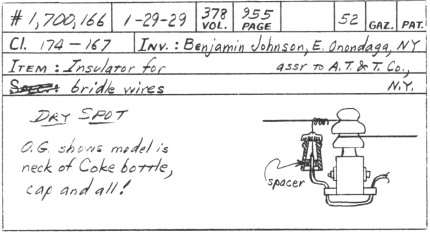 # 1,700,166 1-29-29 378 VOL. 955 PAGE 52 GAZ. PAT.
Cl. 174-167 INV.: Benjamin Johnson, E. Onondaga, NY
ITEM: Insulator for assr to A.T. & T. Co.,
bridle wires N.Y.
DRY SPOT
O.G. shows model is
neck of Coke bottle,
cap and all!
spacer